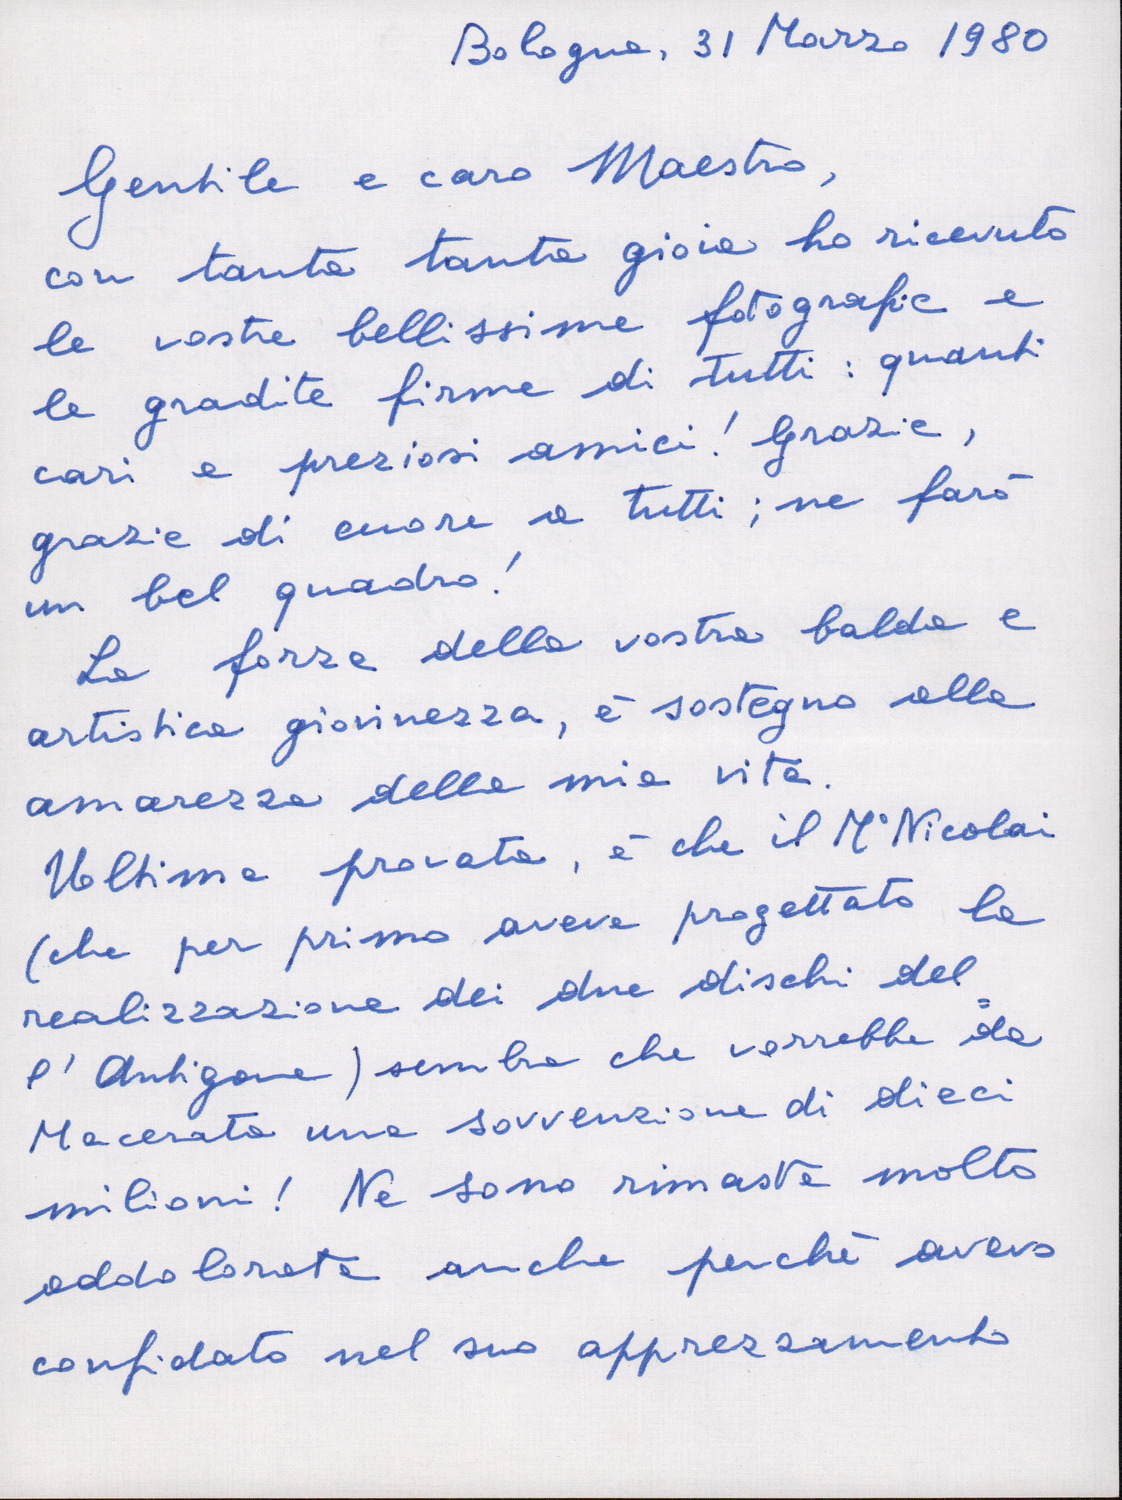 Bologna, 31 Marzo 1980
Gentile e caro Maestro,
con tanta tanta gioia ho ricevuto
le vostre bellissime fotografie e
le gradite firme di tutti: quanti
cari e preziosi amici! Grazie,
grazie di cuore a tutti; ne farò
un bel quadro!
La forza della vostra balda e
artistica giovinezza, è sostegno alla
amarezza della mia vita.
Ultima provata, è che il M° Nicolai
(che per primo aveva progettato la
realizzazione dei due dischi del
l'Antigone) sembra che vorrebbe da
Macerata una sovvenzione di dieci
milioni! Ne sono rimasta molto
addolorata anche perchè avevo
confidato nel suo apprezzamento